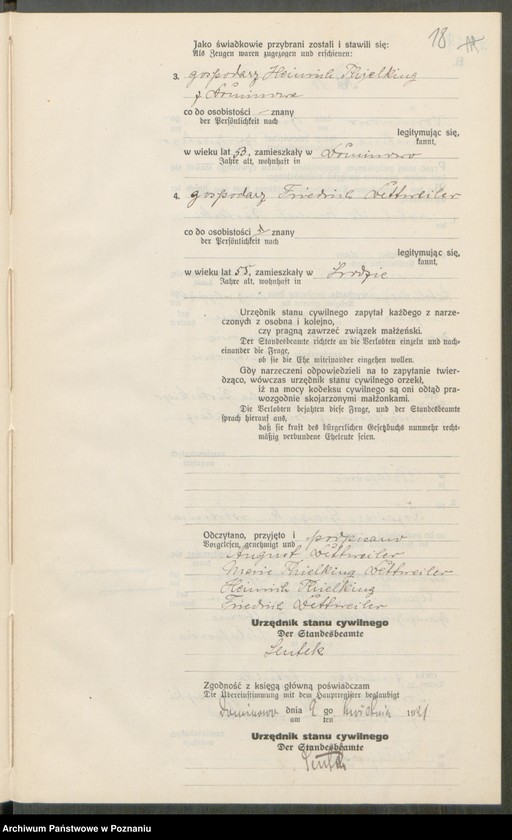 18
Jako świadkowie przybrani zostali i stawili się:
Als Zeugen waren zugezogen und erschienen:
3. gospodarz Heinrich Thielking
z Dominowa
co do osobistości znany
der Persönlichkeit nach
legitymując się,
kannt,
w wieku lat 53, zamieszkały w Dominowo
Jahre alt, wohnhaft in
4. gospodarz Friedrich Dettweiler
co do osobistości znany
der Persönlichkeit nach
legitymując się,
kannt,
w wieku lat 55, zamieszkały w
Jahre alt, wohnhaft in
Urzędnik stanu cywilnego zapytał każdego z narze-
czonych z osobna i kolejno,
czy pragną zawrzeć związek małżeński.
Der Standesbeamte richtete an die Verlobten einzeln und nach-
einander die Frage,
ob sie die Ehe miteinander eingehen wollen.
Gdy narzeczeni odpowiedzieli na to zapytanie twier-
dząco, wówczas urzędnik stanu cywilnego orzekł,
iż na mocy kodeksu cywilnego są oni odtąd pra-
wozgodnie skojarzonymi małżonkami.
Die Verlobten bejahten diese Frage, und der Standesbeamte
sprach hierauf aus,
daß sie kraft des bürgerlichen Gesetzbuchs nunmehr recht-
mäßig verbundene Eheleute seien.
Odczytano, przyjęto i podpisano
Vorgelesen, genehmigt und
August Dettweiler
Marie Thielking Dettweiler
Heinrich Thielking
Friedrich Dettweiler
Urzędnik stanu cywilnego
Der Standesbeamte
Sentek
Zgodność z księgą główną poświadczam
Die Übereinstimmung mit dem Hauptregister beglaubigt
Dominowo dnia 9 go kwietnia 1921
am ten
Urzędnik stanu cywilnego
Der Standesbeamte
Sentek
Archiwum Państwowe w Poznaniu